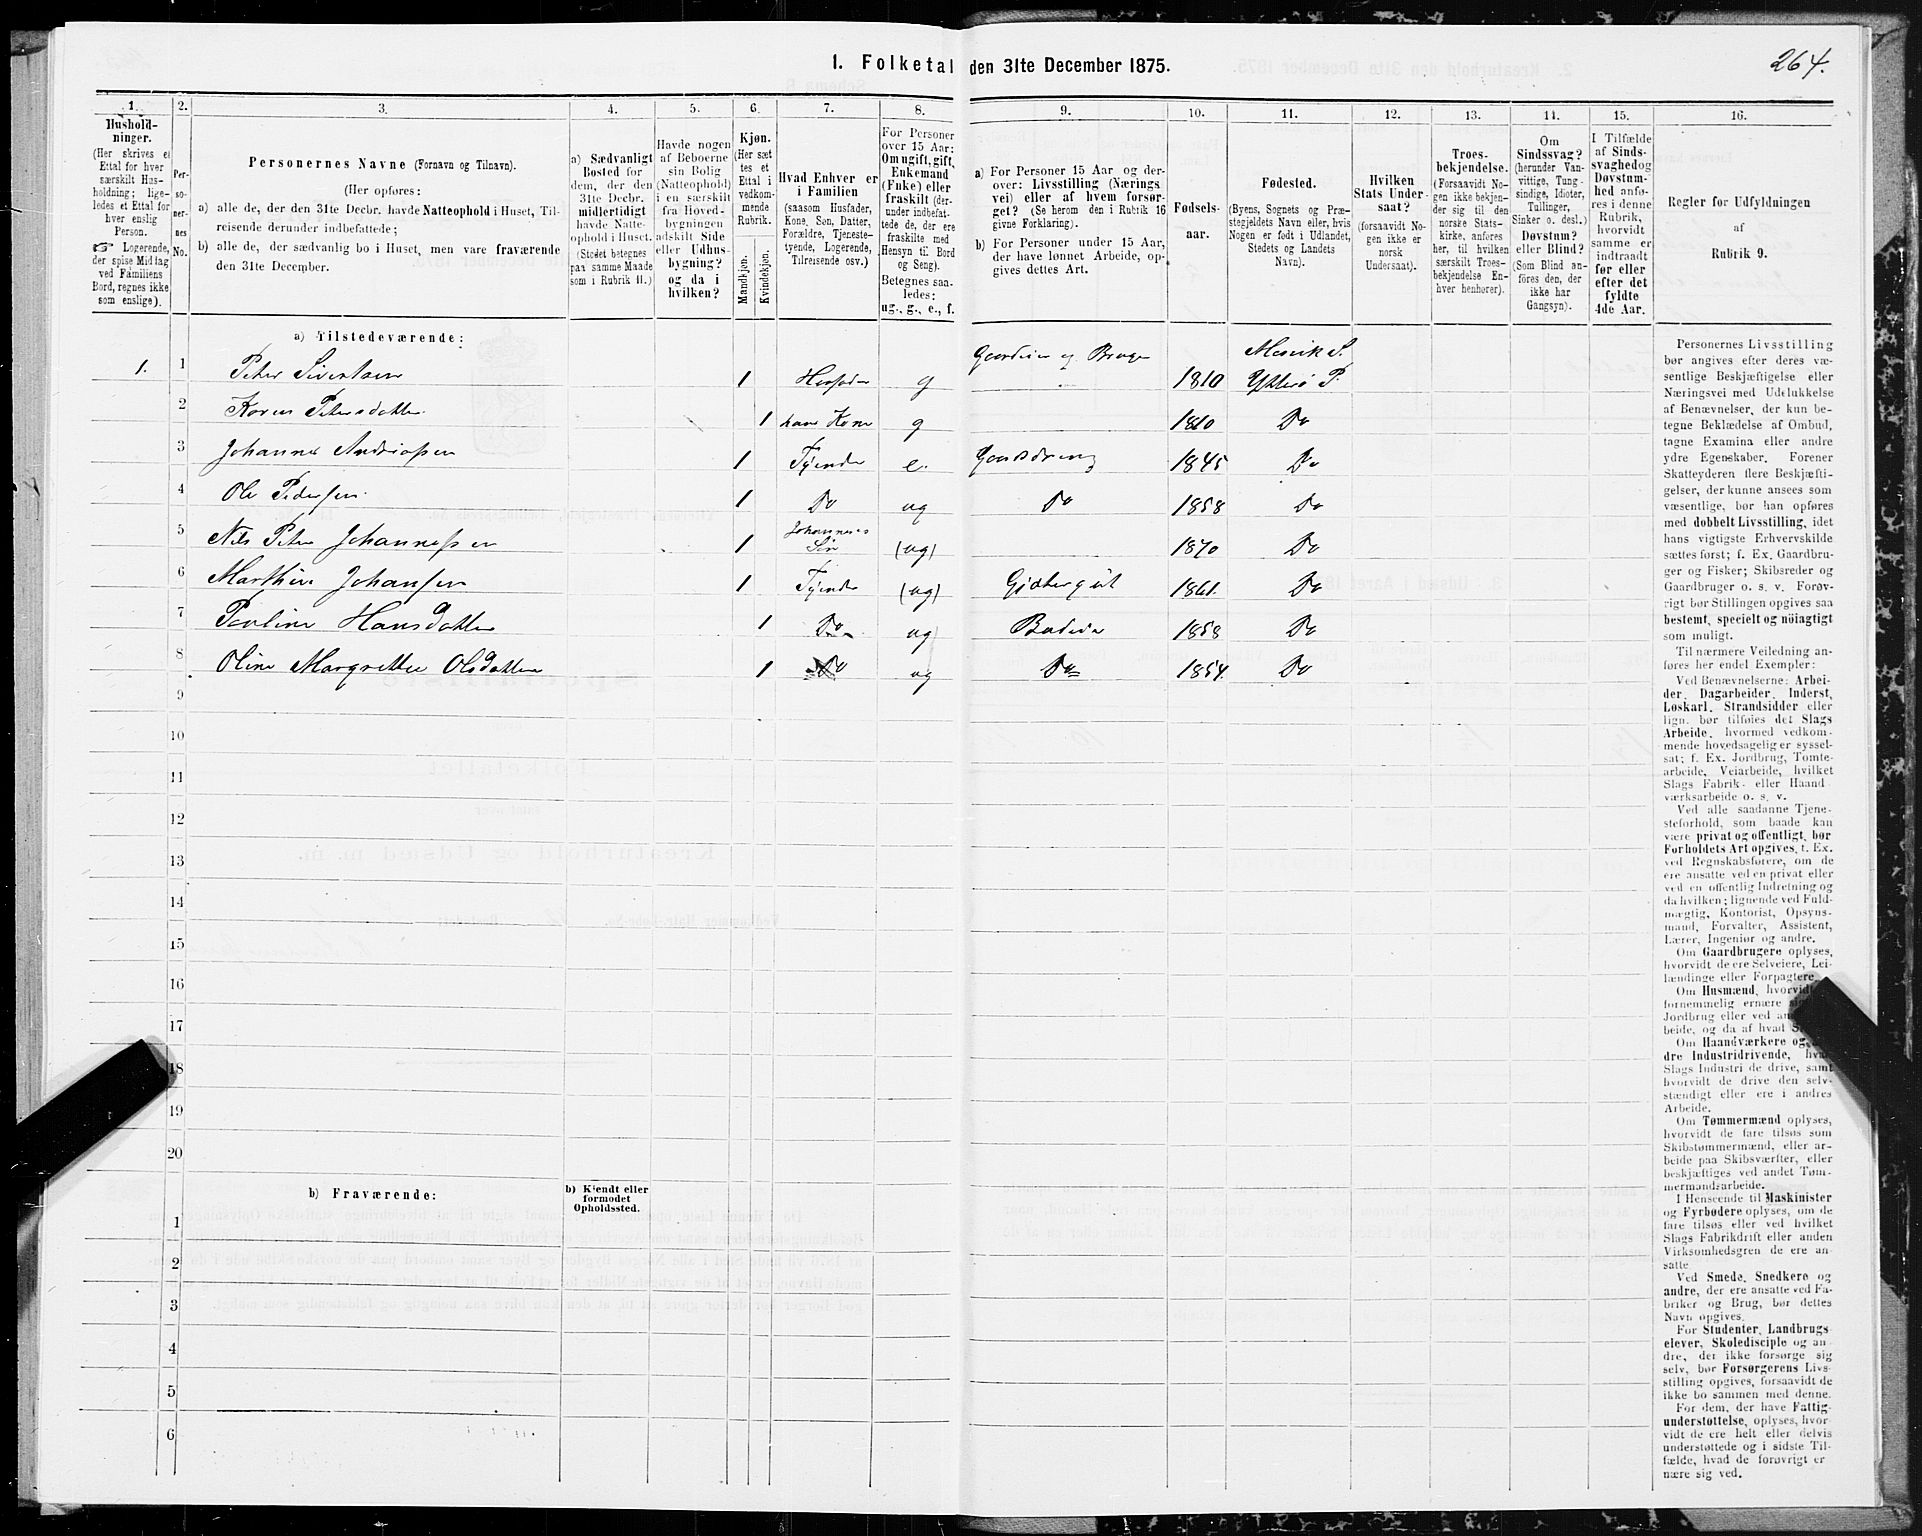 1. Folketal den 31te December 1875.
264.
1.
Hushold-
ninger.
(Her skrives et
Ettal for hver
særskilt Hus-
holdning; lige-
ledes et Ettal for
hver enslig
Person.
☞ Logerende,
der spise Middag
ved Familiens
Bord, regnes ikke
som enslige).
2.
Per-
so-
ner-
nes
No.
3.
Personernes Navne (Fornavn og Tilnavn).
(Her opføres:
a) alle de, der den 31te Decbr. havde Natteophold i Huset, Til-
reisende derunder indbefattede;
b) alle de, der sædvanlig bo i Huset, men vare fraværende
den 31te December.
4.
a) Sædvanligt
Bosted for
dem, der den
31te Decbr.
midlertidigt
havde Natte-
ophold i Huset.
(Stedet betegnes
paa samme Maade
som i Rubrik 11.)
5.
Havde nogen
af Beboerne
sin Bolig
(Natteophold)
i en særskilt
fra Hoved-
bygningen
adskilt Side
eller Udhus-
bygning?
og da i
hvilken?
6.
Kjøn.
(Her sæt
tes et
Ettal i
vedkom-
mende
Rubrik.
Mandkjøn.
Kvindekjøn.
7.
Hvad Enhver er
i Familien
(saasom Husfader,
Kone, Søn, Datter,
Forældre, Tjeneste-
tyende, Logerende,
Tilreisende osv.)
8.
For Personer
over 15 Aar:
Om ugift, gift,
Enkemand
(Enke) eller
fraskilt (der-
under indbefat-
tede de, der ere
fraskilte med
Hensyn til Bord
og Seng).
Betegnes saa-
ledes:
ug., g., e., f.
9.
a) For Personer 15 Aar og der-
over: Livsstilling (Nærings
vei) eller af hvem forsør-
get? (Se herom den i Rubrik 16
givne Forklaring).
b) For Personer under 15 Aar,
der have lønnet Arbeide, op-
gives dettes Art.
10.
Fødsels-
aar.
11.
Fødested.
(Byens, Sognets og Præ-
stegjeldets Navn eller, hvis
Nogen er født i Udlandet,
Stedets og Landets
Navn).
12.
Hvilken
Stats Under-
saat?
(forsaavidt No-
gen ikke er
norsk
Undersaat).
13.
Troes-
bekjendelse.
(Forsaavidt No-
gen ikke bekjen-
der sig til den
norske Stats-
kirke, anføres
her, til hvilken
særskilt Troes-
bekjendelse En-
hver henhører).
14.
Om
Sindssvag?
(herunder Van-
vittige, Tung-
sindige, Idioter,
Tullinger,
Sinker o. desl.)
Døvstum?
eller Blind?
(Som Blind an-
føres den, der
ikke har
Gangsyn).
15.
I Tilfælde
af Sinds-
svaghed og
Døvstum-
hed anfø-
res i denne
Rubrik,
hvorvidt
samme er
indtraadt
før eller
efter det
fyldte
4de Aar.
16.
Regler for Udfyldningen
af
Rubrik 9.
a) Tilstedeværende:
1. 1 Peter Sivertsen 1 Husfader g Gaardeier og Bruger 1810 Mosvik S. Ytterø P.
2 Karen Petersdatter 1 hans Kone g 1810 Do
3 Johannes Andreasen 1 Tjender e. Gaardsdreng 1845 Do
4 Ole Pedersen. 1 Do ug Do 1858 Do
5 Nils Peter Johannesen 1 Johannes Søn (ug) 1870 Do
6 Marthin Johansen 1 Tjender (ug) Gjætergut 1861. Do
7 Pauline Hansdatter 1 Do ug Budeie 1858 Do
8 Oline Margrethe Olsdatter 1 Do ug Do 1854. Do
9
10
11
12
13
14
15
16
17
18
19
20
b) Fraværende:
b) Kjendt eller
formodet
Opholdssted.
1
2
3
4
5
6
Personernes Livsstilling
bør angives efter deres væ-
sentlige Beskjæftigelse eller
Næringsvei med Udelukkelse
af Benævnelser, der kun be-
tegne Beklædelse af Ombud,
tagne Examina eller andre
ydre Egenskaber. Forener
Skatteyderen flere Beskjæfti-
gelser, der kunne ansees som
væsentlige, bør han opføres
med dobbelt Livsstilling, idet
hans vigtigste Erhvervskilde
sættes først; f. Ex. Gaardbru-
ger og Fisker; Skibsreder og
Gaardbruger o. s. v. Forøv-
rigt bør Stillingen opgives saa
bestemt, specielt og nøiagtigt
som muligt.
Til nærmere Veiledning an-
føres her endel Exempler:
Ved Benævnelserne: Arbei-
der, Dagarbeider, Inderst,
Løskarl, Strandsidder eller
lign. bør tilføies det Slags
Arbeide, hvormed vedkom-
mende hovedsagelig er syssel-
sat; f. Ex. Jordbrug, Tomte-
arbeide, Veiarbeide, hvilket
Slags Fabrik- eller Haand
værksarbeide o. s. v.
Ved alle saadanne Tjene-
steforhold, som baade kan
være privat og offentligt, bør
Forholdets Art opgives, t. Ex.
ved Regnskabsførere, om de
ere ansatte ved en privat eller
ved en offentlig Indretning og
da hvilken; lignende ved Fuld-
mægtig, Kontorist, Opsyns-
mand, Forvalter, Assistent,
Lærer, Ingeniør og andre.
Om Gaardbrugere oplyses,
hvorvidt de ere Selveiere, Lei-
lændinge eller Forpagtere
Om Husmænd, hvorvidt
fornemmelig ernære
Jordbrug eller ved
beide, og da af hvad
Om Haandværkere og
dre Industridrivende,
Slags Industri de drive, samt
hvorvidt de drive den selv-
stændigt eller ere i andres
Arbeide.
Om Tømmermænd oplyses,
hvorvidt de fare tilsøs som
Skibstømmermænd, eller ar-
beide paa Skibsværfter, eller
beskjæftiges ved andet Tøm-
mermandsarbeide.
I Henseende til Maskinister
og Fyrbødere oplyses, om de
fare tilsøs eller ved hvilket
Slags Fabrikdrift eller anden
Virksomhedsgren de ere an-
satte.
Ved Smede, Snedkere og
andre, der ere ansatte ved Fa-
briker og Brug, bør dettes
Navn opgives.
For Studenter, Landbrugs
elever, Skoledisciple og an-
dre, der ikke forsørge sig
selv, bør Forsørgerens Livs-
stilling opgives, forsaavidt de
ikke bo sammen med denne.
For dem, der have Fattig-
understøttelse, oplyses, hvor-
vidt de ere helt eller delvis
understøttede og i sidste Til-
fælde, hvad de forøvrigt er
nære sig ved.